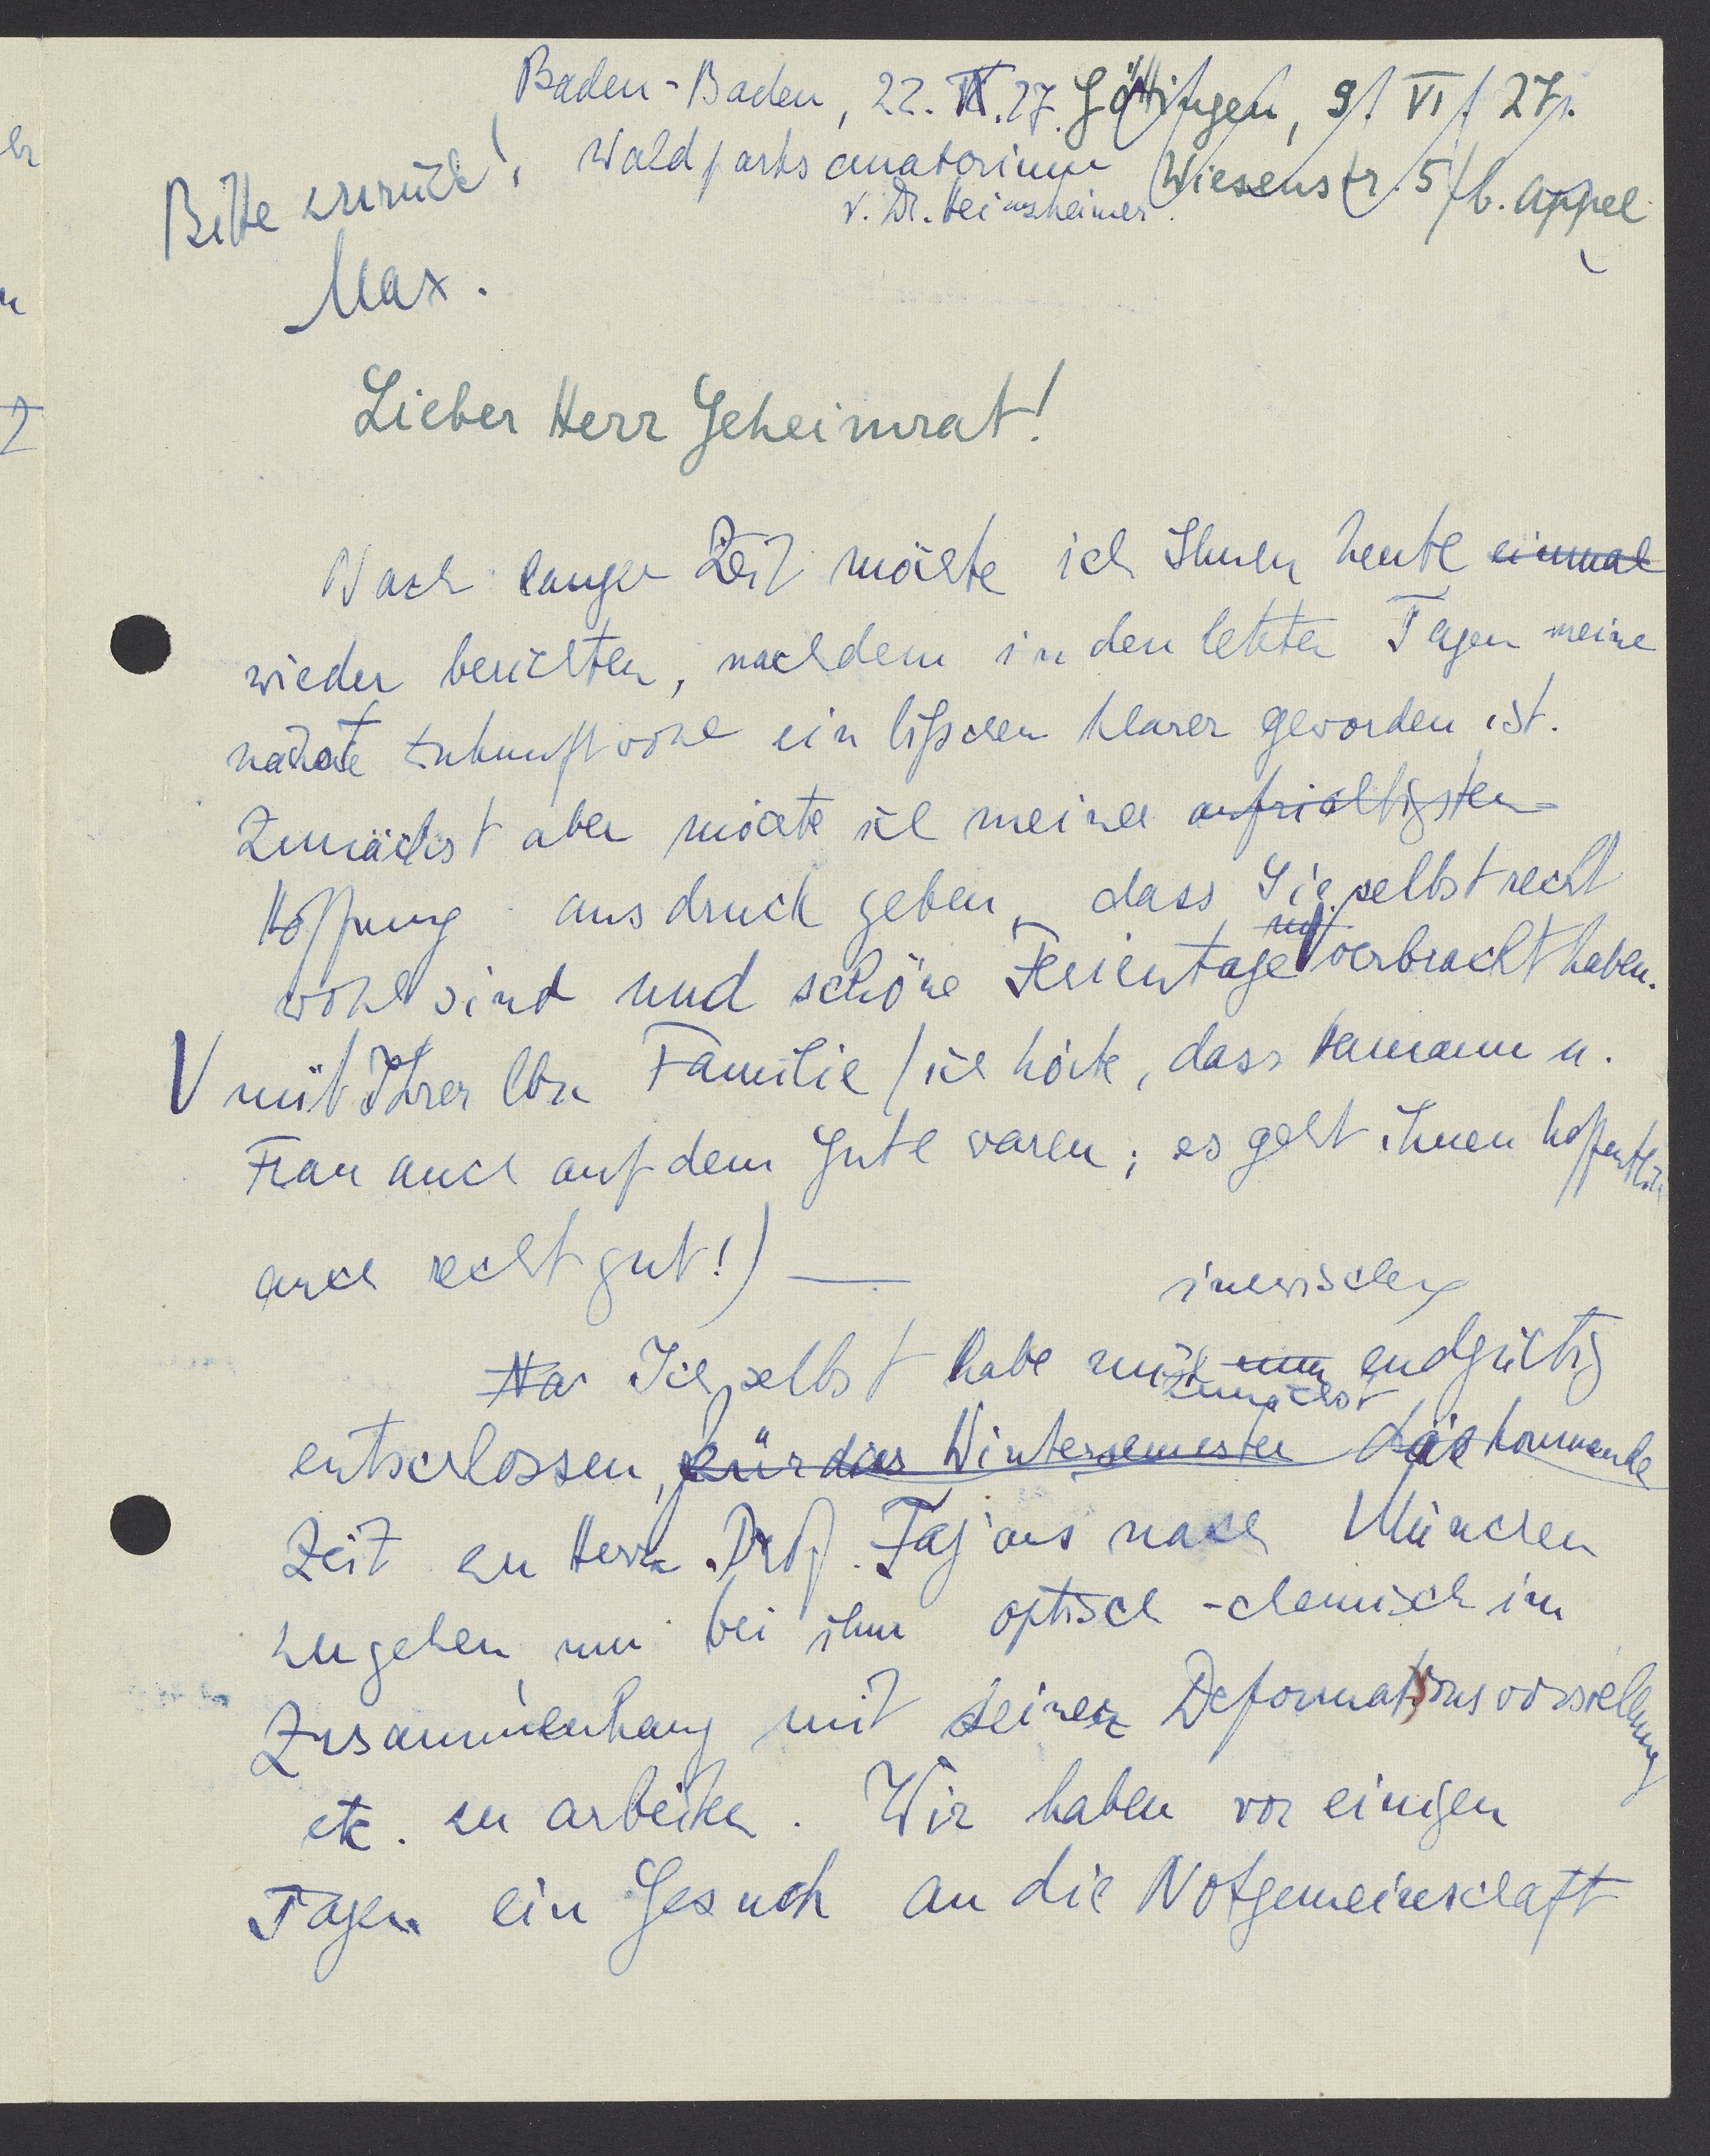 Baden-Baden, 22. IX. 27. Göttingen, 9. VI. 27.
Bitte zurück! Waldparksanatorium Wiesenstr. 5 / b. Appel
v. Dr. Heinsheimer.
Max.
Lieber Herr Geheimrat!
Nach langer Zeit möchte ich Ihnen heute einmal
wieder berichten, nachdem in den letzten Tagen meine
nächste Zukunft wohl ein bisschen klarer geworden ist.
Zunächst aber möchte ich meiner aufrichtigsten
Hoffnung ausdruck geben, dass Sie selbst recht
wohl sind und schöne Ferientage verbracht haben.
V mit Ihrer lbn Familie (ich hörte, dass Hermann u.
Frau auch auf dem Gute waren; es geht ihnen hoffentlich
auch recht gut!) —
inzwischen
Na Ich selbst habe mich nun endgültig
zunächst
entschlossen, für das Wintersemester die kommende
Zeit zu Herrn Prof. Fajans nach München
zu gehen, um bei ihm optisch-chemisch im
Zusammenhang mit seinen Deformationsvorstellung
etc. zu arbeiten. Wir haben vor einigen
Tagen ein Gesuch an die Notgemeinschaft